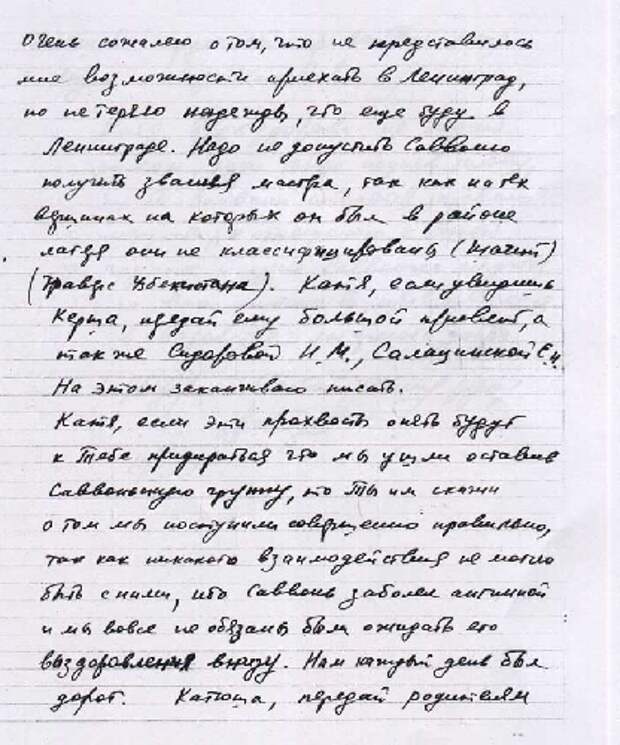 очень сожалею о том, что не представилось
мне возможности приехать в Ленинград,
но не теряю надежды, что еще буду в
Ленинграде. Надо не допустить Саввоню
получить звания мастера, так как на тех
вершинах на которых он был в районе
они не классифицированы
(Траверс Узбекистана). Катя, если увидишь
Керша, передай ему большой привет, а
также Сидоровой И.М., Салацинской Е.И.
На этом заканчиваю писать.
Катя, если эти прохвосты опять будут
к Тебе придираться что мы ушли оставив
группу, то Ты им скажи
о том мы поступили совершенно правильно,
так как никакого взаимодействия не могло
быть с ними, ибо Саввонь заболел ангиной
и мы вовсе не обязаны были ожидать его
выздоровления внизу. Нам каждый день был
дорог. Катюша, передай родителям